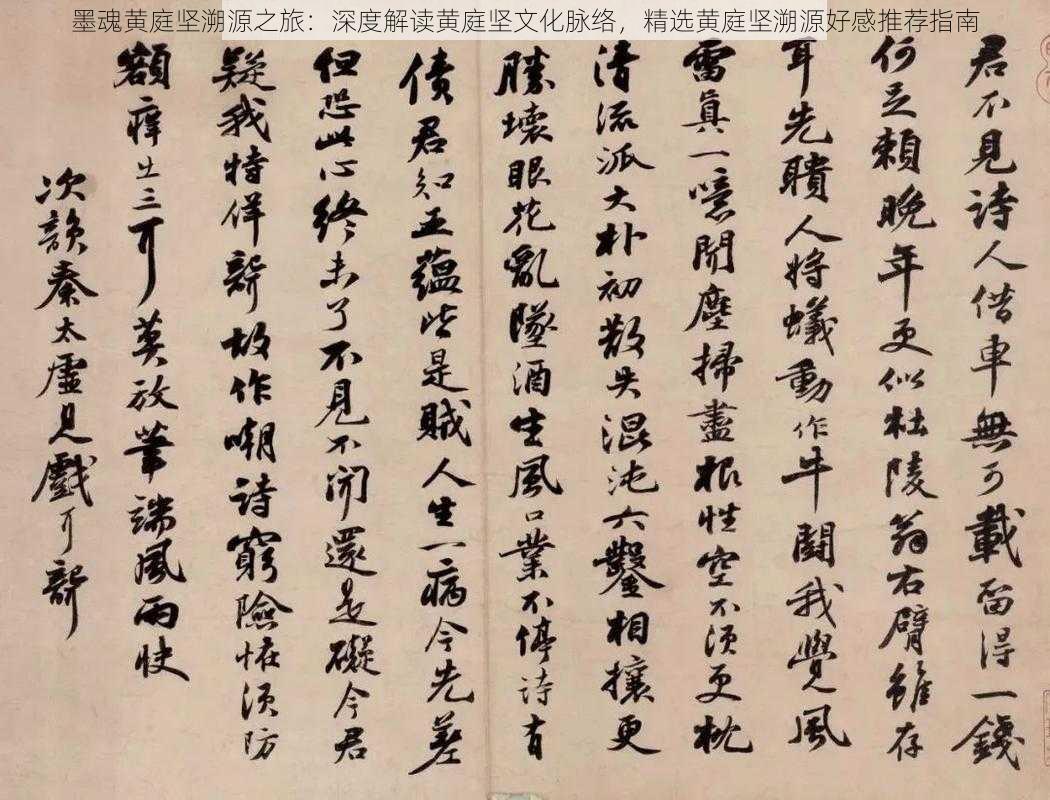 墨魂黄庭坚溯源之旅：深度解读黄庭坚文化脉络，精选黄庭坚溯源好感推荐指南
君不見詩人借車無可載留得一錢
何足賴晚年更似杜陵翁右臂雖存
耳先聵人將蟻動作牛鬪我覺風
雷真一噫聞塵掃盡根性空不須更枕
清流派大朴初散失混沌六鑿相攘更
勝壞眼花亂墜酒生風口業不停詩有
債君知五蘊皆是賊人生一病今先差
但恐此心終未了不見不聞還是礙今君
疑我特佯聾故作嘲詩窮險怪須防
額癢出三耳莫放筆端風雨快
次韻秦太虛見戲耳聾